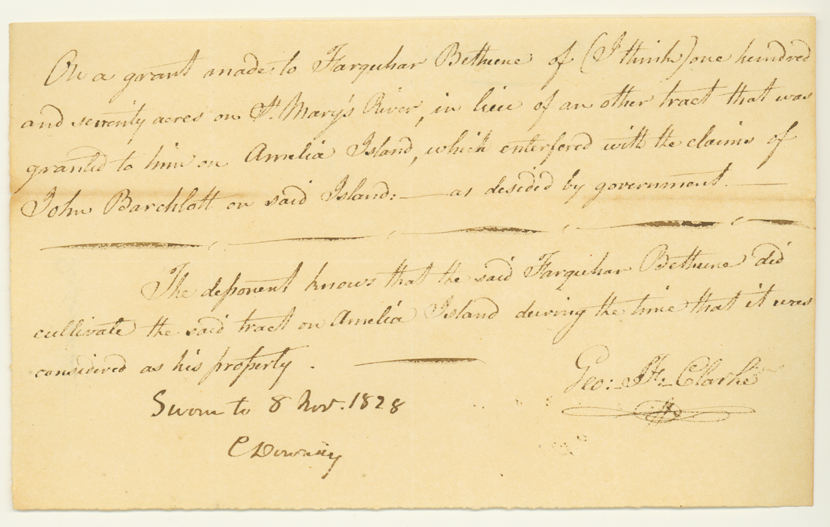 On a grant made to Farquhar Bethune of (I think) one hundred
and seventy acres on St. Mary's River, in lieu of an other tract that was
granted to him on Amelia Island, which enterfered with the claims of
John Barchlott on said Island: — as desided by government. —
The deponent knows that the said Farquhar Bethune did
cultivate the said tract on Amelia Island during the time that it was
considered as his property. —
Geo: J. F. Clarke
Sworn to 8 Nov. 1828
C Downing